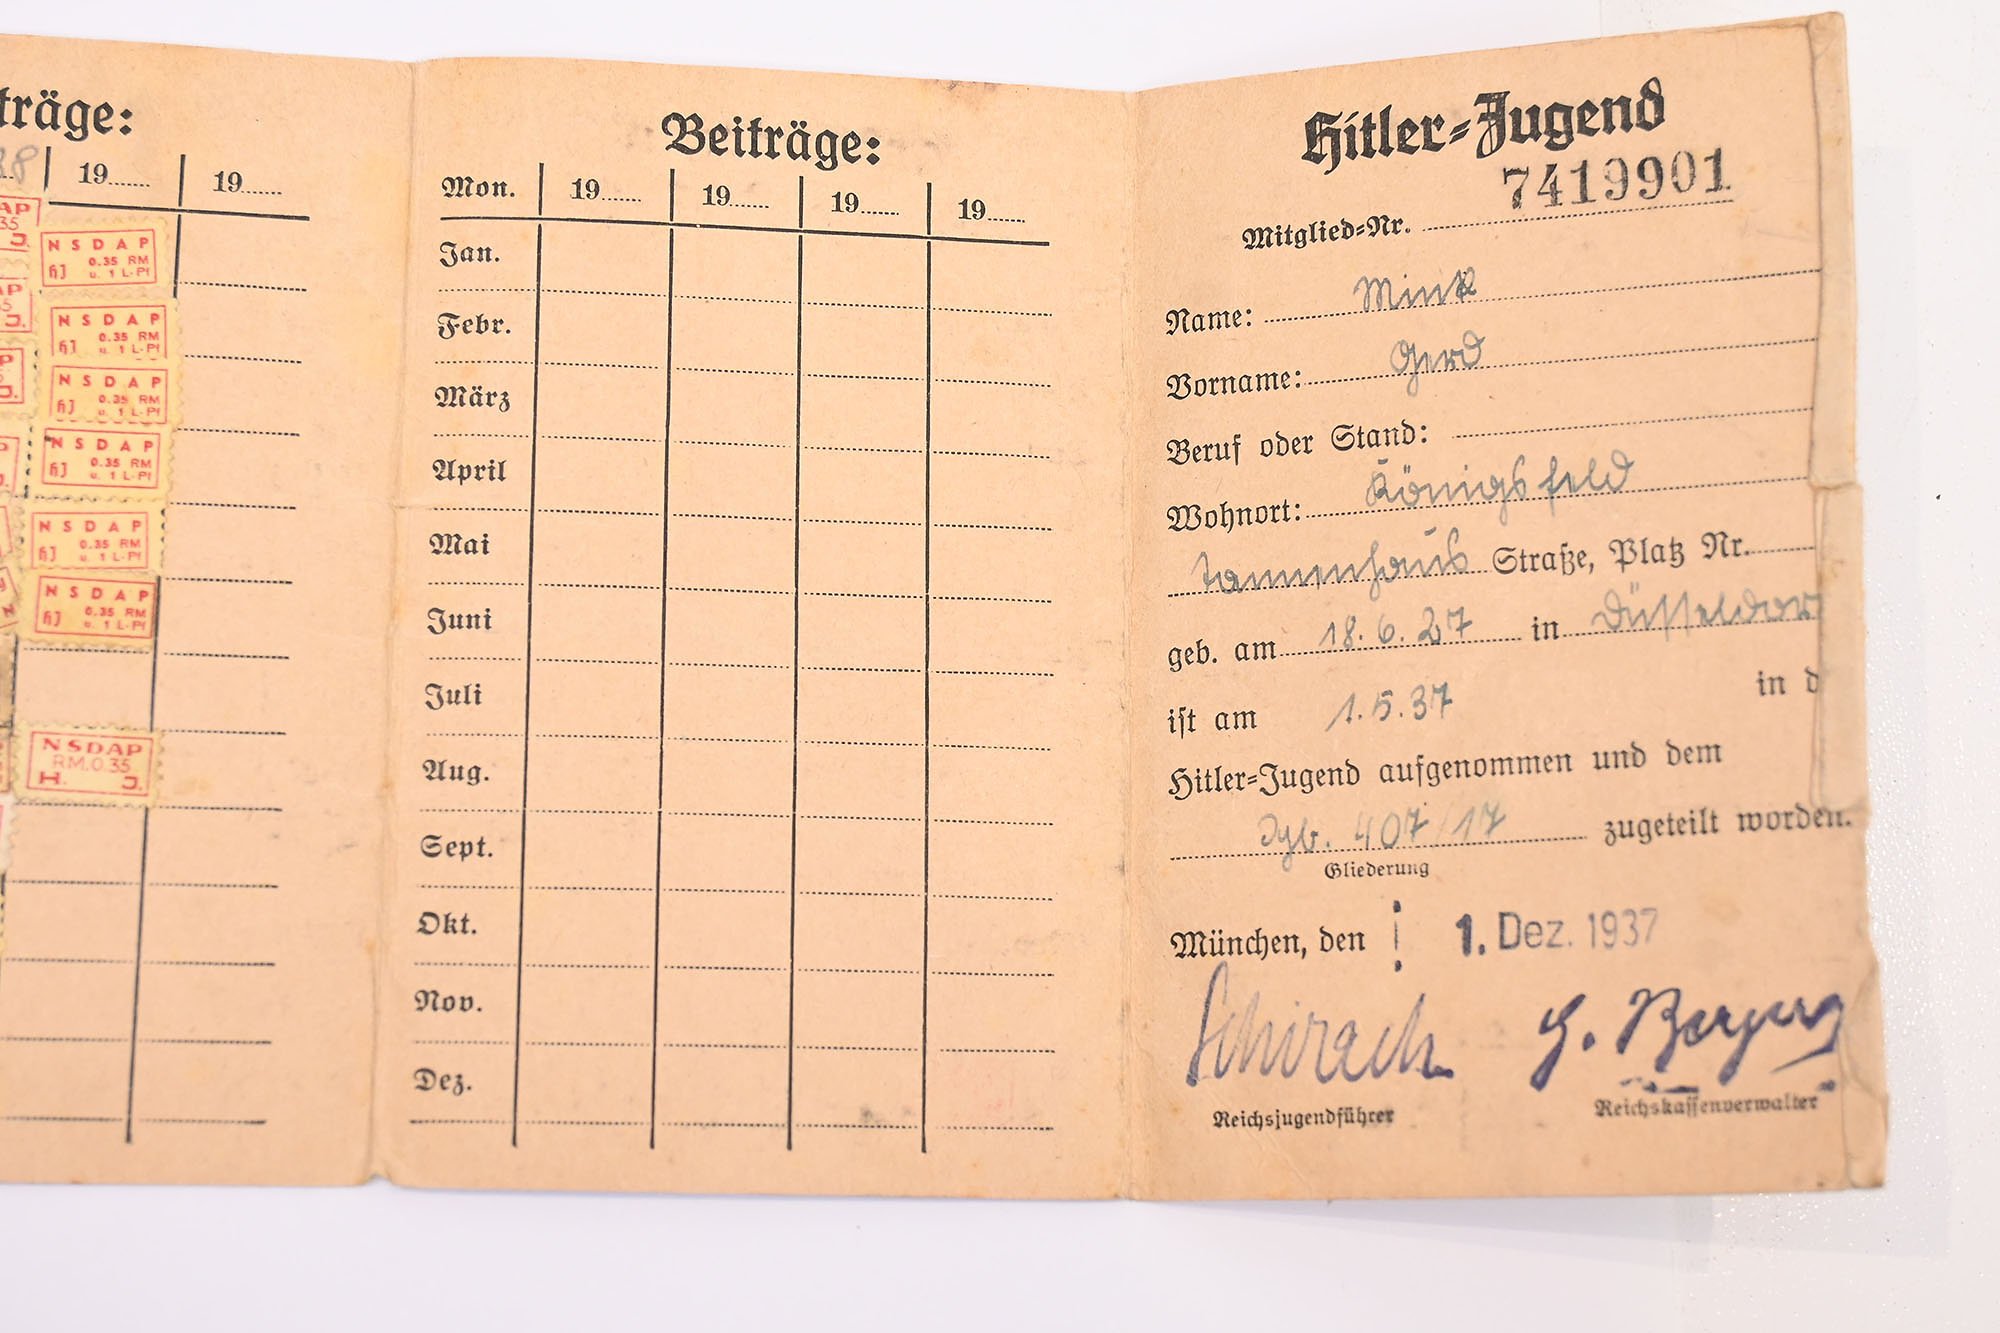 träge:
38 19...... 19......
NSDAP
0.35 RM
HJ u. 1 L-Pf
NSDAP
0.35 RM
HJ u. 1 L-Pf
NSDAP
0.35 RM
HJ u. 1 L-Pf
NSDAP
0.35 RM
HJ u. 1 L-Pf
NSDAP
0.35 RM
HJ u. 1 L-Pf
NSDAP
0.35 RM
HJ u. 1 L-Pf
NSDAP
RM.0.35
H. J.
Beiträge:
Mon. 19...... 19...... 19...... 19......
Jan.
Febr.
März
April
Mai
Juni
Juli
Aug.
Sept.
Okt.
Nov.
Dez.
Hitler-Jugend
Mitglied-Nr. 7419901
Name: Mink
Vorname: Gerd
Beruf oder Stand:
Wohnort: Königsfeld
Tannenhaus Straße, Platz Nr.
geb. am 18.6.27 in Düsseldorf
ist am 1.5.37 in d
Hitler-Jugend aufgenommen und dem
Jgb. 407/17 zugeteilt worden.
Gliederung
München, den 1. Dez. 1937
Schirach
Reichsjugendführer Reichskassenverwalter